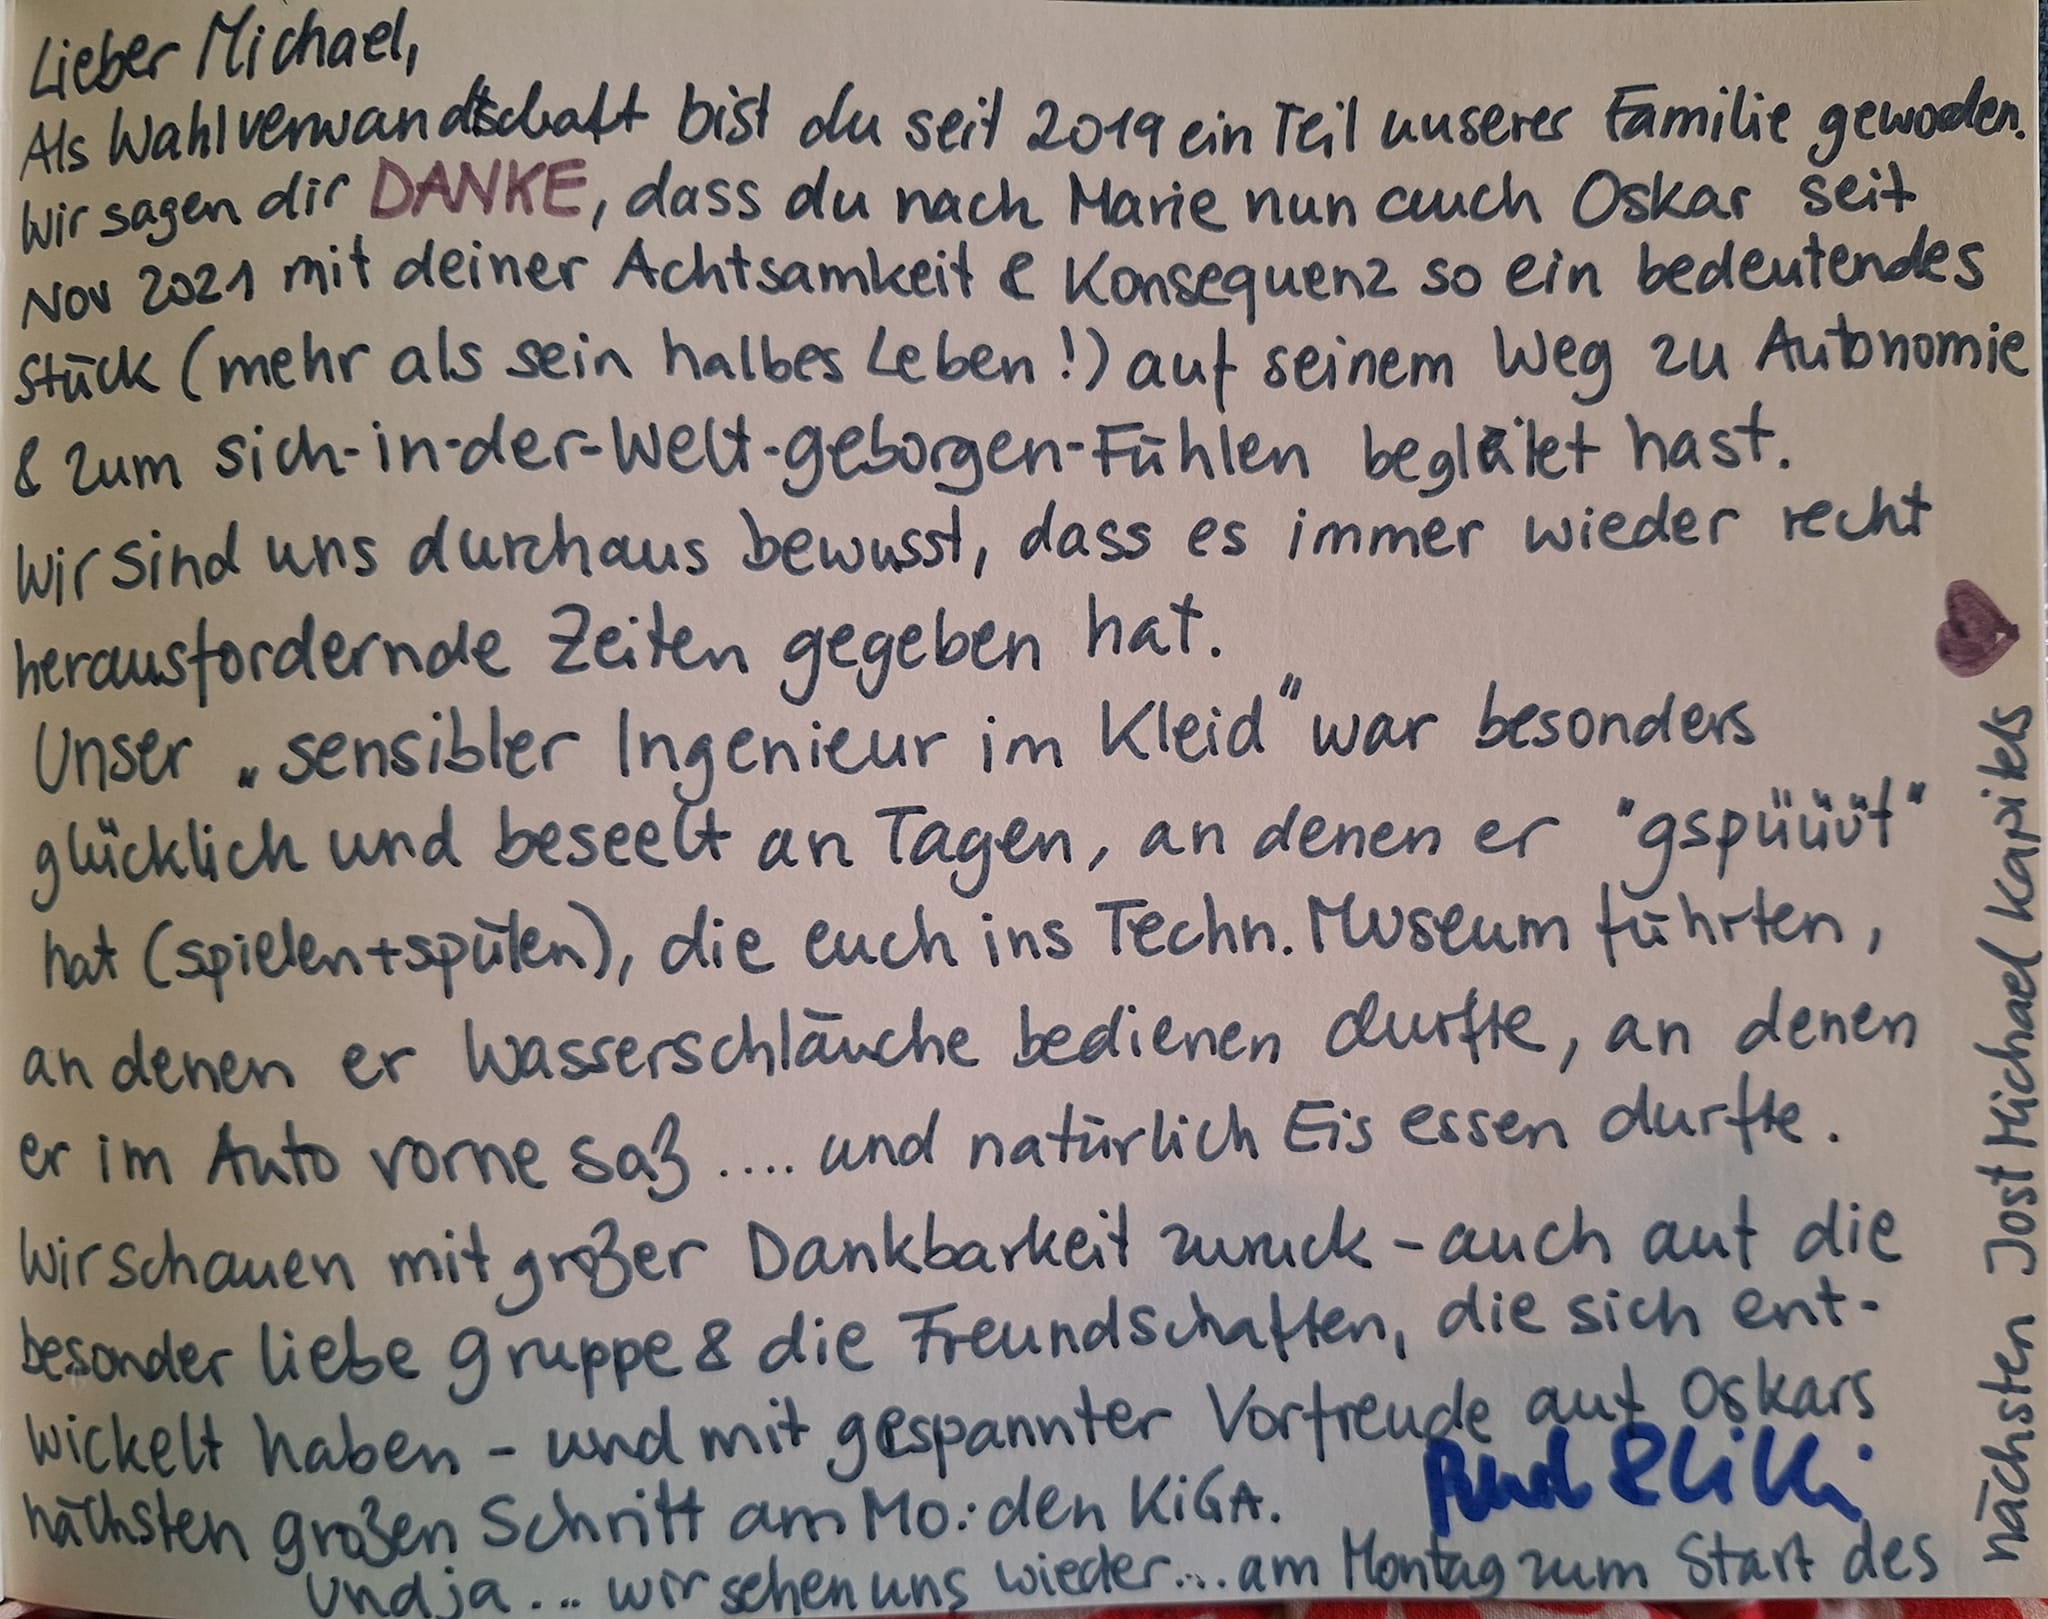 Lieber Michael,
Als Wahlverwandtschaft bist du seit 2019 ein Teil unserer Familie geworden.
Wir sagen dir DANKE, dass du nach Marie nun auch Oskar seit
Nov 2021 mit deiner Achtsamkeit & Konsequenz so ein bedeutendes
Stück (mehr als sein halbes Leben!) auf seinem Weg zu Autonomie
& zum sich-in-der-Welt-geborgen-Fühlen begleitet hast.
Wir sind uns durchaus bewusst, dass es immer wieder recht
herausfordernde Zeiten gegeben hat.
Unser „sensibler Ingenieur im Kleid" war besonders
glücklich und beseelt an Tagen, an denen er "gspüüüt"
hat (spielen+spülen), die euch ins Techn. Museum führten,
an denen er Wasserschläuche bedienen durfte, an denen
er im Auto vorne saß .... und natürlich Eis essen durfte.
Wir schauen mit großer Dankbarkeit zurück - auch auf die
besonder liebe Gruppe & die Freundschaften, die sich ent-
wickelt haben - und mit gespannter Vorfreude auf Oskars
nächsten großen Schritt am Mo.: den KiGA.
Und ja ... wir sehen uns wieder ... am Montag zum Start des
nächsten Jost Michael Kapitels